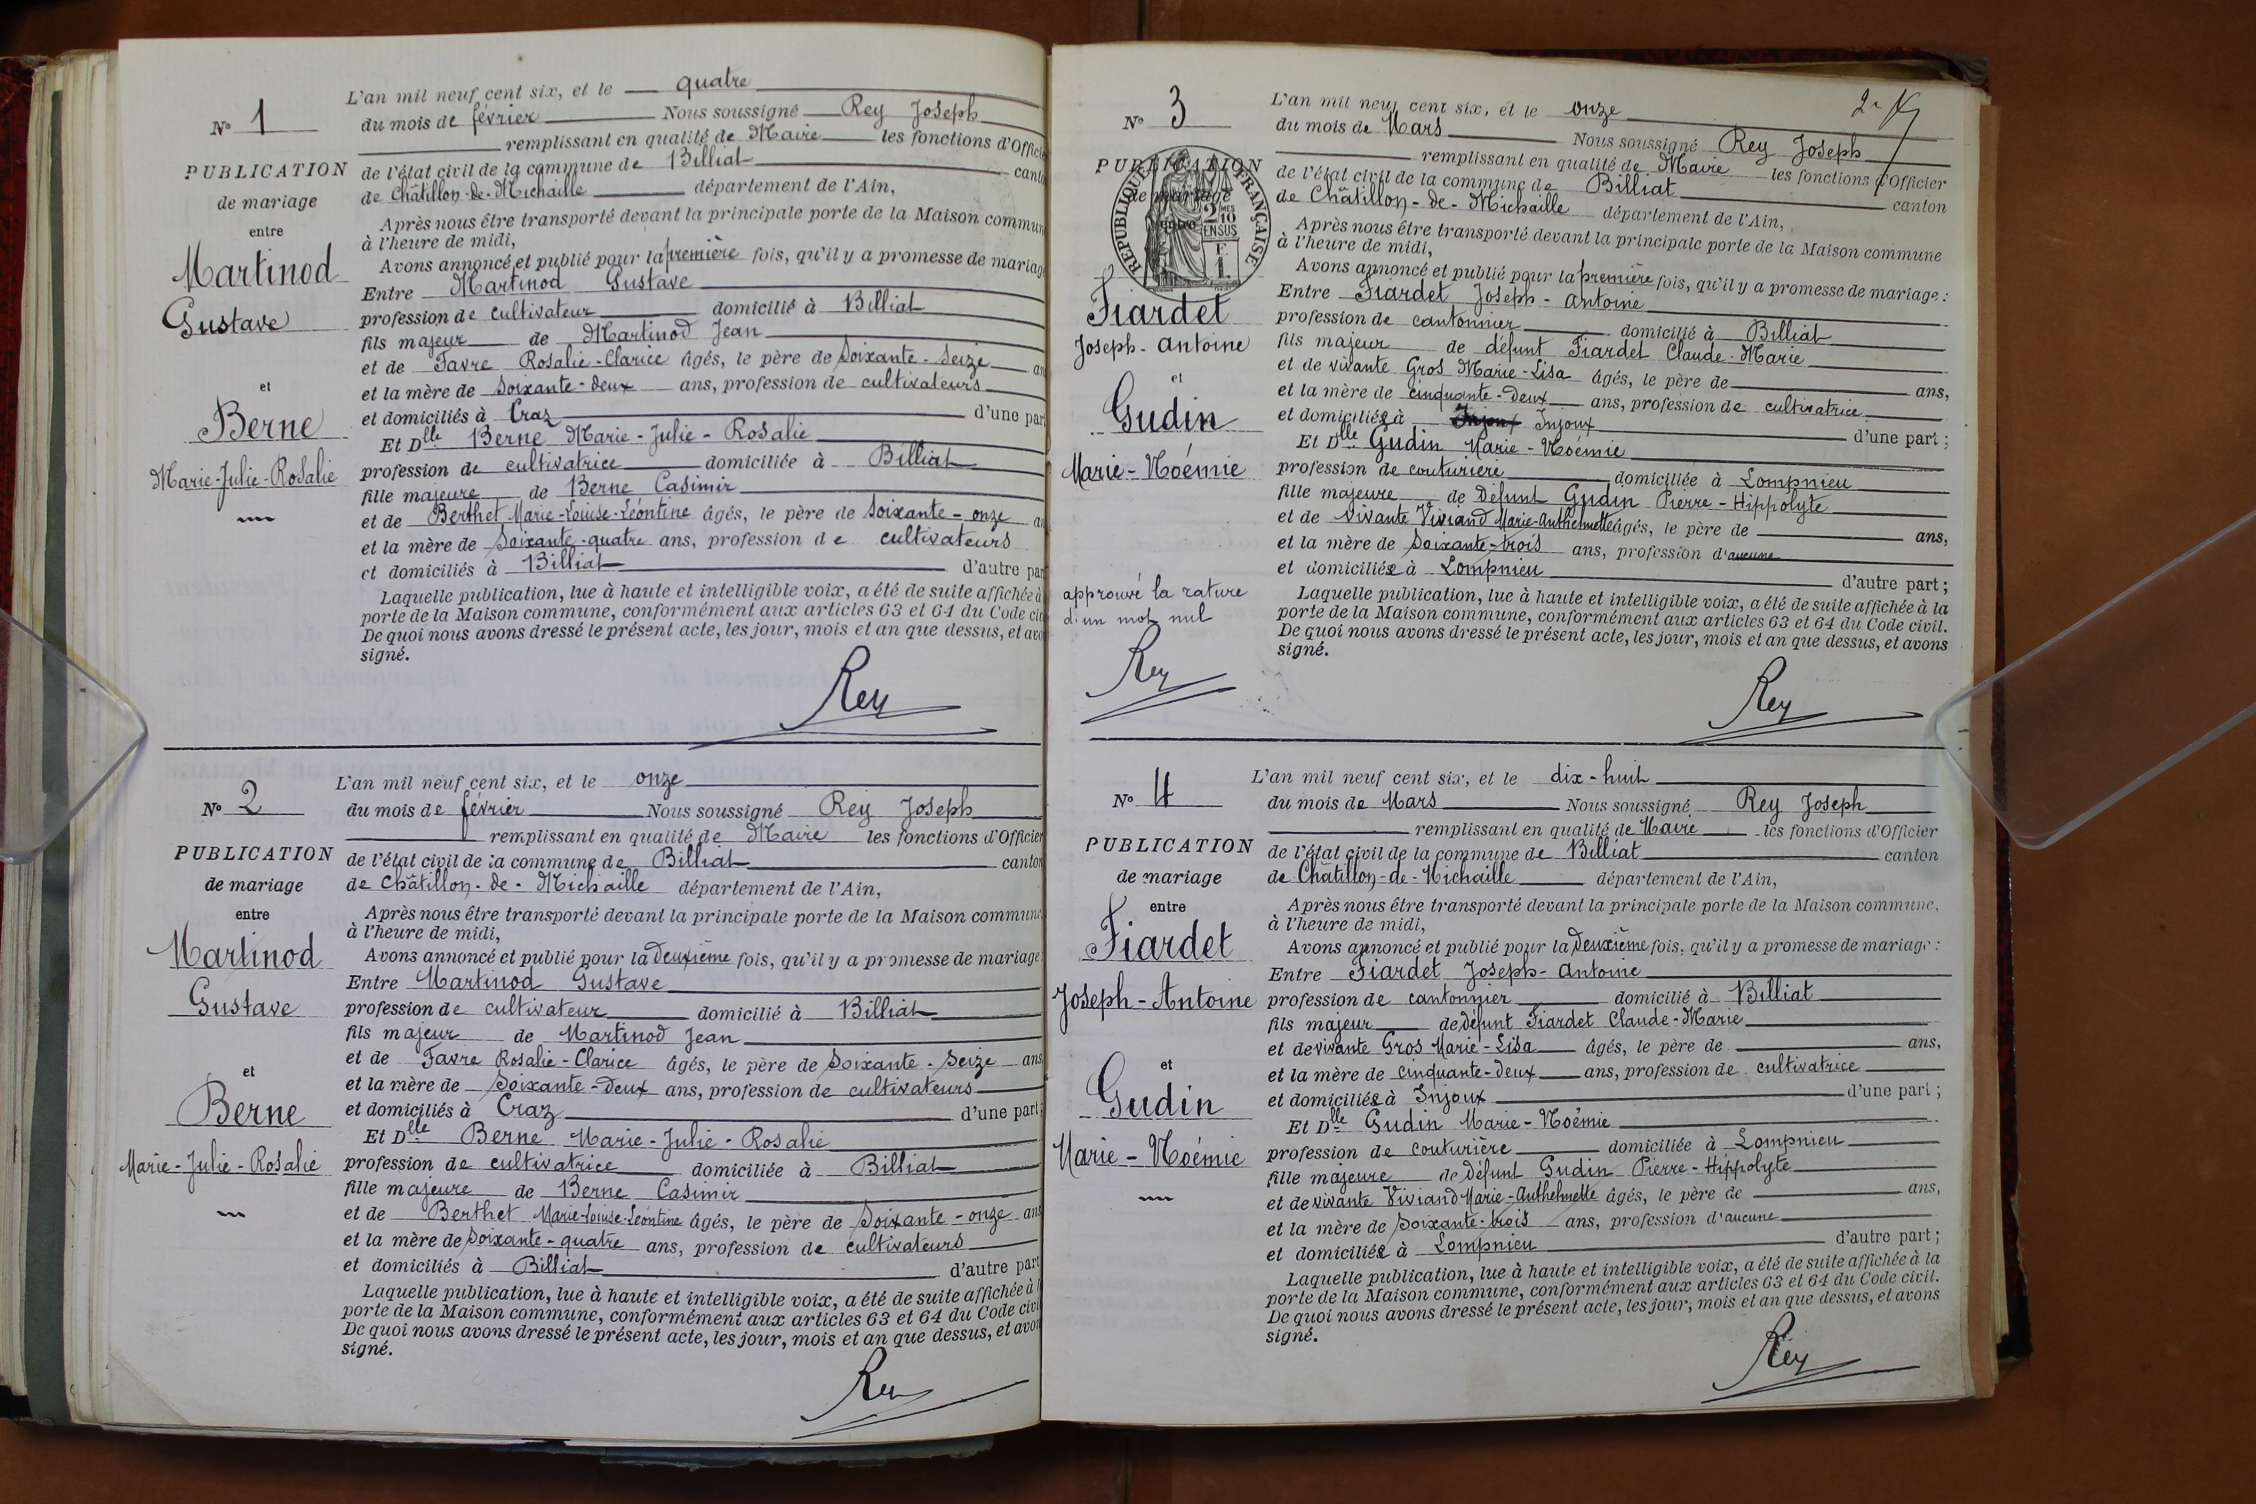 N° 1
PUBLICATION
de mariage
entre
Martinod
Gustave
et
Berne
Marie-Julie-Rosalie
L'an mil neuf cent six, et le quatre
du mois de février Nous soussigné Rey Joseph
remplissant en qualité de Maire les fonctions d'Officie
de l'état civil de la commune de Billiat canto
de Châtillon-de-Michaille département de l'Ain,
Après nous être transporté devant la principale porte de la Maison commun
à l'heure de midi,
Avons annoncé et publié pour la première fois, qu'il y a promesse de mariag
Entre Martinod Gustave
profession de cultivateur domicilié à Billiat
fils majeur de Martinod Jean
et de Favre Rosalie-Clarice âgés, le père de soixante-seize an
et la mère de soixante-deux ans, profession de cultivateurs
et domiciliés à Craz d'une par
Et Dlle Berne Marie-Julie-Rosalie
profession de cultivatrice domiciliée à Billiat
fille majeure de Berne Casimir
et de Berthet Marie-Louise-Léontine âgés, le père de soixante-onze an
et la mère de soixante-quatre ans, profession de cultivateurs
et domiciliés à Billiat d'autre par
Laquelle publication, lue à haute et intelligible voix, a été de suite affichée à
porte de la Maison commune, conformément aux articles 63 et 64 du Code civ
De quoi nous avons dressé le présent acte, les jour, mois et an que dessus, et avo
signé.
Rey
N° 2
PUBLICATION
de mariage
entre
Martinod
Gustave
et
Berne
Marie-Julie-Rosalie
L'an mil neuf cent six, et le onze
du mois de février Nous soussigné Rey Joseph
remplissant en qualité de Maire les fonctions d'Officier
de l'état civil de la commune de Billiat canton
de Châtillon-de-Michaille département de l'Ain,
Après nous être transporté devant la principale porte de la Maison commune
à l'heure de midi,
Avons annoncé et publié pour la deuxième fois, qu'il y a promesse de mariage
Entre Martinod Gustave
profession de cultivateur domicilié à Billiat
fils majeur de Martinod Jean
et de Favre Rosalie-Clarice âgés, le père de soixante-seize ans
et la mère de soixante-deux ans, profession de cultivateurs
et domiciliés à Craz d'une part;
Et Dlle Berne Marie-Julie-Rosalie
profession de cultivatrice domiciliée à Billiat
fille majeure de Berne Casimir
et de Berthet Marie-Louise-Léontine âgés, le père de soixante-onze ans
et la mère de soixante-quatre ans, profession de cultivateurs
et domiciliés à Billiat d'autre part
Laquelle publication, lue à haute et intelligible voix, a été de suite affichée à
porte de la Maison commune, conformément aux articles 63 et 64 du Code civi
De quoi nous avons dressé le présent acte, les jour, mois et an que dessus, et avon
signé.
Rey
N° 3
PUBLICATION
de mariage
entre
RÉPUBLIQUE FRANÇAISE
2 MES 10
EN SUS
F.
1.
Fiardet
Joseph-Antoine
et
Gudin
Marie-Noémie
approuvé la rature
d'un mot nul
Rey
L'an mil neuf cent six, et le onze
du mois de Mars Nous soussigné Rey Joseph
remplissant en qualité de Maire les fonctions d'Officier
de l'état civil de la commune de Billiat canton
de Châtillon-de-Michaille département de l'Ain,
Après nous être transporté devant la principale porte de la Maison commune
à l'heure de midi,
Avons annoncé et publié pour la première fois, qu'il y a promesse de mariage :
Entre Fiardet Joseph-Antoine
profession de cantonnier domicilié à Billiat
fils majeur de défunt Fiardet Claude-Marie
et de vivante Gros Marie-Lisa âgés, le père de ans,
et la mère de cinquante-deux ans, profession de cultivatrice
et domiciliée à Injoux Injoux d'une part;
Et Dlle Gudin Marie-Noémie
profession de couturière domiciliée à Lompnieu
fille majeure de défunt Gudin Pierre-Hippolyte
et de vivante Viviand Marie-Anthelmette âgés, le père de ans,
et la mère de soixante-trois ans, profession d'aucune
et domiciliée à Lompnieu d'autre part;
Laquelle publication, lue à haute et intelligible voix, a été de suite affichée à la
porte de la Maison commune, conformément aux articles 63 et 64 du Code civil.
De quoi nous avons dressé le présent acte, les jour, mois et an que dessus, et avons
signé.
Rey
N° 4
PUBLICATION
de mariage
entre
Fiardet
Joseph-Antoine
et
Gudin
Marie-Noémie
L'an mil neuf cent six, et le dix-huit
du mois de Mars Nous soussigné Rey Joseph
remplissant en qualité de Maire les fonctions d'Officier
de l'état civil de la commune de Billiat canton
de Châtillon-de-Michaille département de l'Ain,
Après nous être transporté devant la principale porte de la Maison commune,
à l'heure de midi,
Avons annoncé et publié pour la deuxième fois, qu'il y a promesse de mariage :
Entre Fiardet Joseph-Antoine
profession de cantonnier domicilié à Billiat
fils majeur de défunt Fiardet Claude-Marie
et de vivante Gros Marie-Lisa âgés, le père de ans,
et la mère de cinquante-deux ans, profession de cultivatrice
et domiciliée à Injoux d'une part;
Et Dlle Gudin Marie-Noémie
profession de couturière domiciliée à Lompnieu
fille majeure de défunt Gudin Pierre-Hippolyte
et de vivante Viviand Marie-Anthelmette âgés, le père de ans,
et la mère de soixante-trois ans, profession d'aucune
et domiciliée à Lompnieu d'autre part;
Laquelle publication, lue à haute et intelligible voix, a été de suite affichée à la
porte de la Maison commune, conformément aux articles 63 et 64 du Code civil.
De quoi nous avons dressé le présent acte, les jour, mois et an que dessus, et avons
signé.
Rey